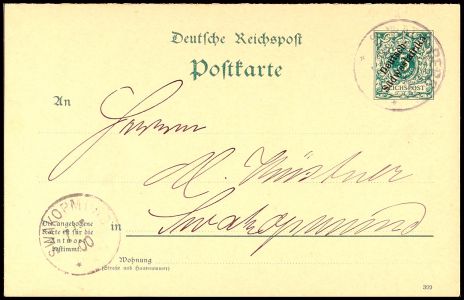 Deutsche Reichspost
Postkarte
5
Deutsch-
Südwest-Afrika
REICHSPOST
An
Herrn
M. Küstner
Swakopmund
in
Die angebogene
Karte ist für die
Antwort
bestimmt.
Wohnung
(Straße und Hausnummer)